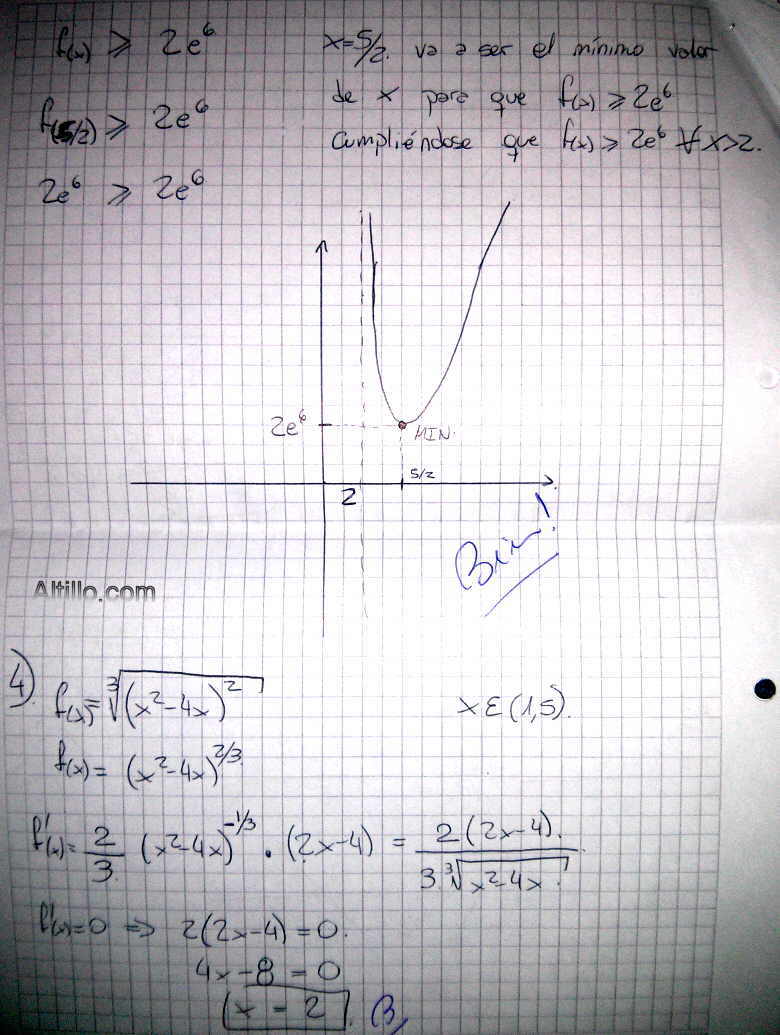 f(x) ⩾ 2e⁶
f(5/2) ⩾ 2e⁶
2e⁶ ⩾ 2e⁶
x=5/2. va a ser el mínimo valor
de x para que f(x) ⩾ 2e⁶
Cumpliéndose que f(x) ⩾ 2e⁶ ∀ x>2.
2e⁶
MIN.
5/2
2
Bien!
Altillo.com
4)
f(x) = ∛(x²-4x)²
x ε (1,5).
f(x) = (x²-4x)^2/3.
f'(x) = 2/3. (x²-4x)^-1/3 . (2x-4) = 2(2x-4). / 3.∛x²-4x.
f'(x)=0 ⇒ 2(2x-4) = 0.
4x-8 = 0
x = 2. B